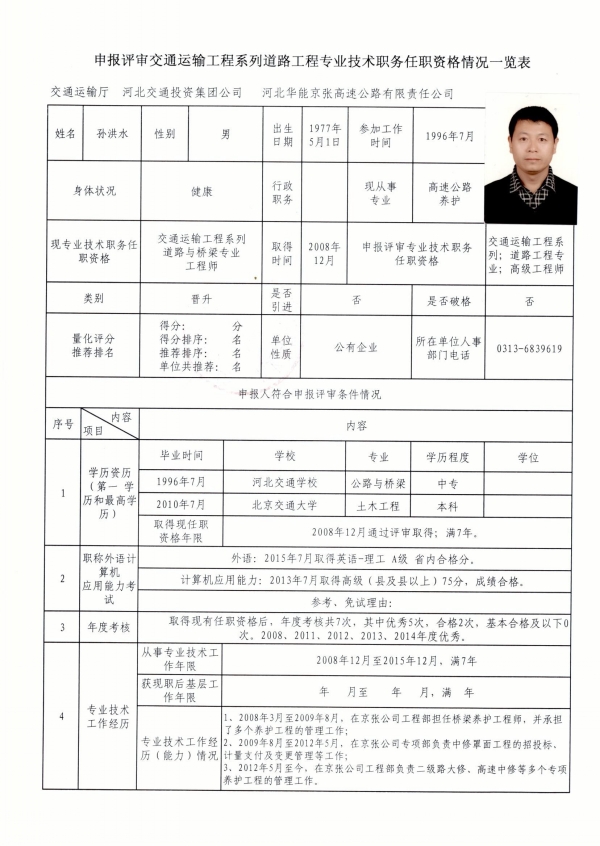 申报评审交通运输工程系列道路工程专业技术职务任职资格情况一览表
交通运输厅 河北交通投资集团公司 河北华能京张高速公路有限责任公司
姓名 孙洪水 性别 男 出生日期 1977年5月1日 参加工作时间 1996年7月
身体状况 健康 行政职务 现从事专业 高速公路养护
现专业技术职务任职资格 交通运输工程系列道路与桥梁专业工程师 取得时间 2008年12月 申报评审专业技术职务任职资格 交通运输工程系列；道路工程专业；高级工程师
类别 晋升 是否引进 否 是否破格 否
量化评分推荐排名
得分： 分
得分排序： 名
推荐排序： 名
单位共推荐： 名
单位性质 公有企业 所在单位人事部门电话 0313-6839619
申报人符合申报评审条件情况
序号 内容 项目 内容
1 学历资历（第一学历和最高学历）
毕业时间 学校 专业 学历程度 学位
1996年7月 河北交通学校 公路与桥梁 中专
2010年7月 北京交通大学 土木工程 本科
取得现任职资格年限 2008年12月通过评审取得；满7年。
2 职称外语计算机应用能力考试
外语：2015年7月取得英语-理工 A级 省内合格分。
计算机应用能力：2013年7月取得高级（县及县以上）75分，成绩合格。
参考、免试理由：
3 年度考核
取得现有任职资格后，年度考核共7次，其中优秀5次，合格2次，基本合格及以下0
次。2008、2011、2012、2013、2014年度优秀。
4 专业技术工作经历
从事专业技术工作年限 2008年12月至2015年12月，满7年
获现职后基层工作年限 年 月至 年 月，满 年
专业技术工作经历（能力）情况
1、2008年3月至2009年8月，在京张公司工程部担任桥梁养护工程师，并承担
了多个养护工程的管理工作；
2、2009年8月至2012年5月，在京张公司专项部负责中修罩面工程的招投标、
计量支付及变更管理等工作；
3、2012年5月至今，在京张公司工程部负责二级路大修、高速中修等多个专项
养护工程的管理工作。